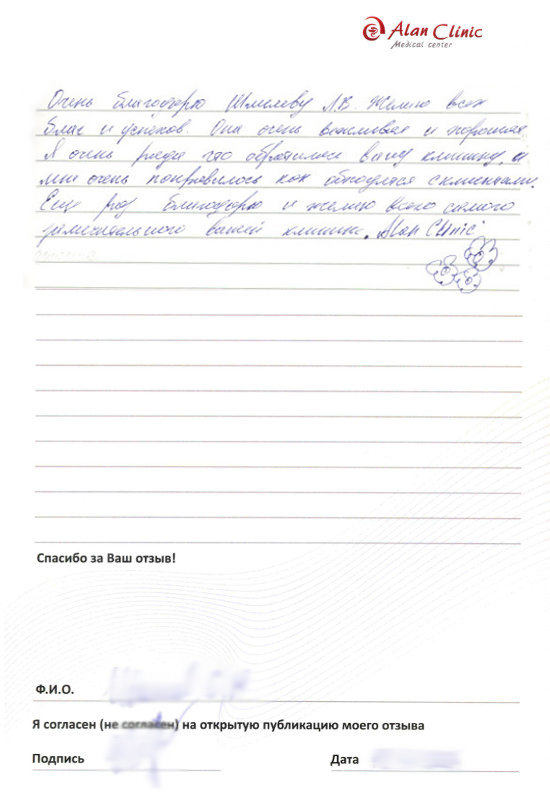 Alan Clinic
Medical center
Очень благодарю Шмелеву Л.В. Желаю всех
благ и успехов. Она очень вежливая и хорошая.
Я очень рада что обратилась в вашу клинику, и
мне очень понравилось как обходятся с клиентами.
Еще раз благодарю и желаю всего самого
замечательного вашей клинике. Alan Clinic
Спасибо за Ваш отзыв!
Ф.И.О.
Я согласен (не согласен) на открытую публикацию моего отзыва
Подпись Дата